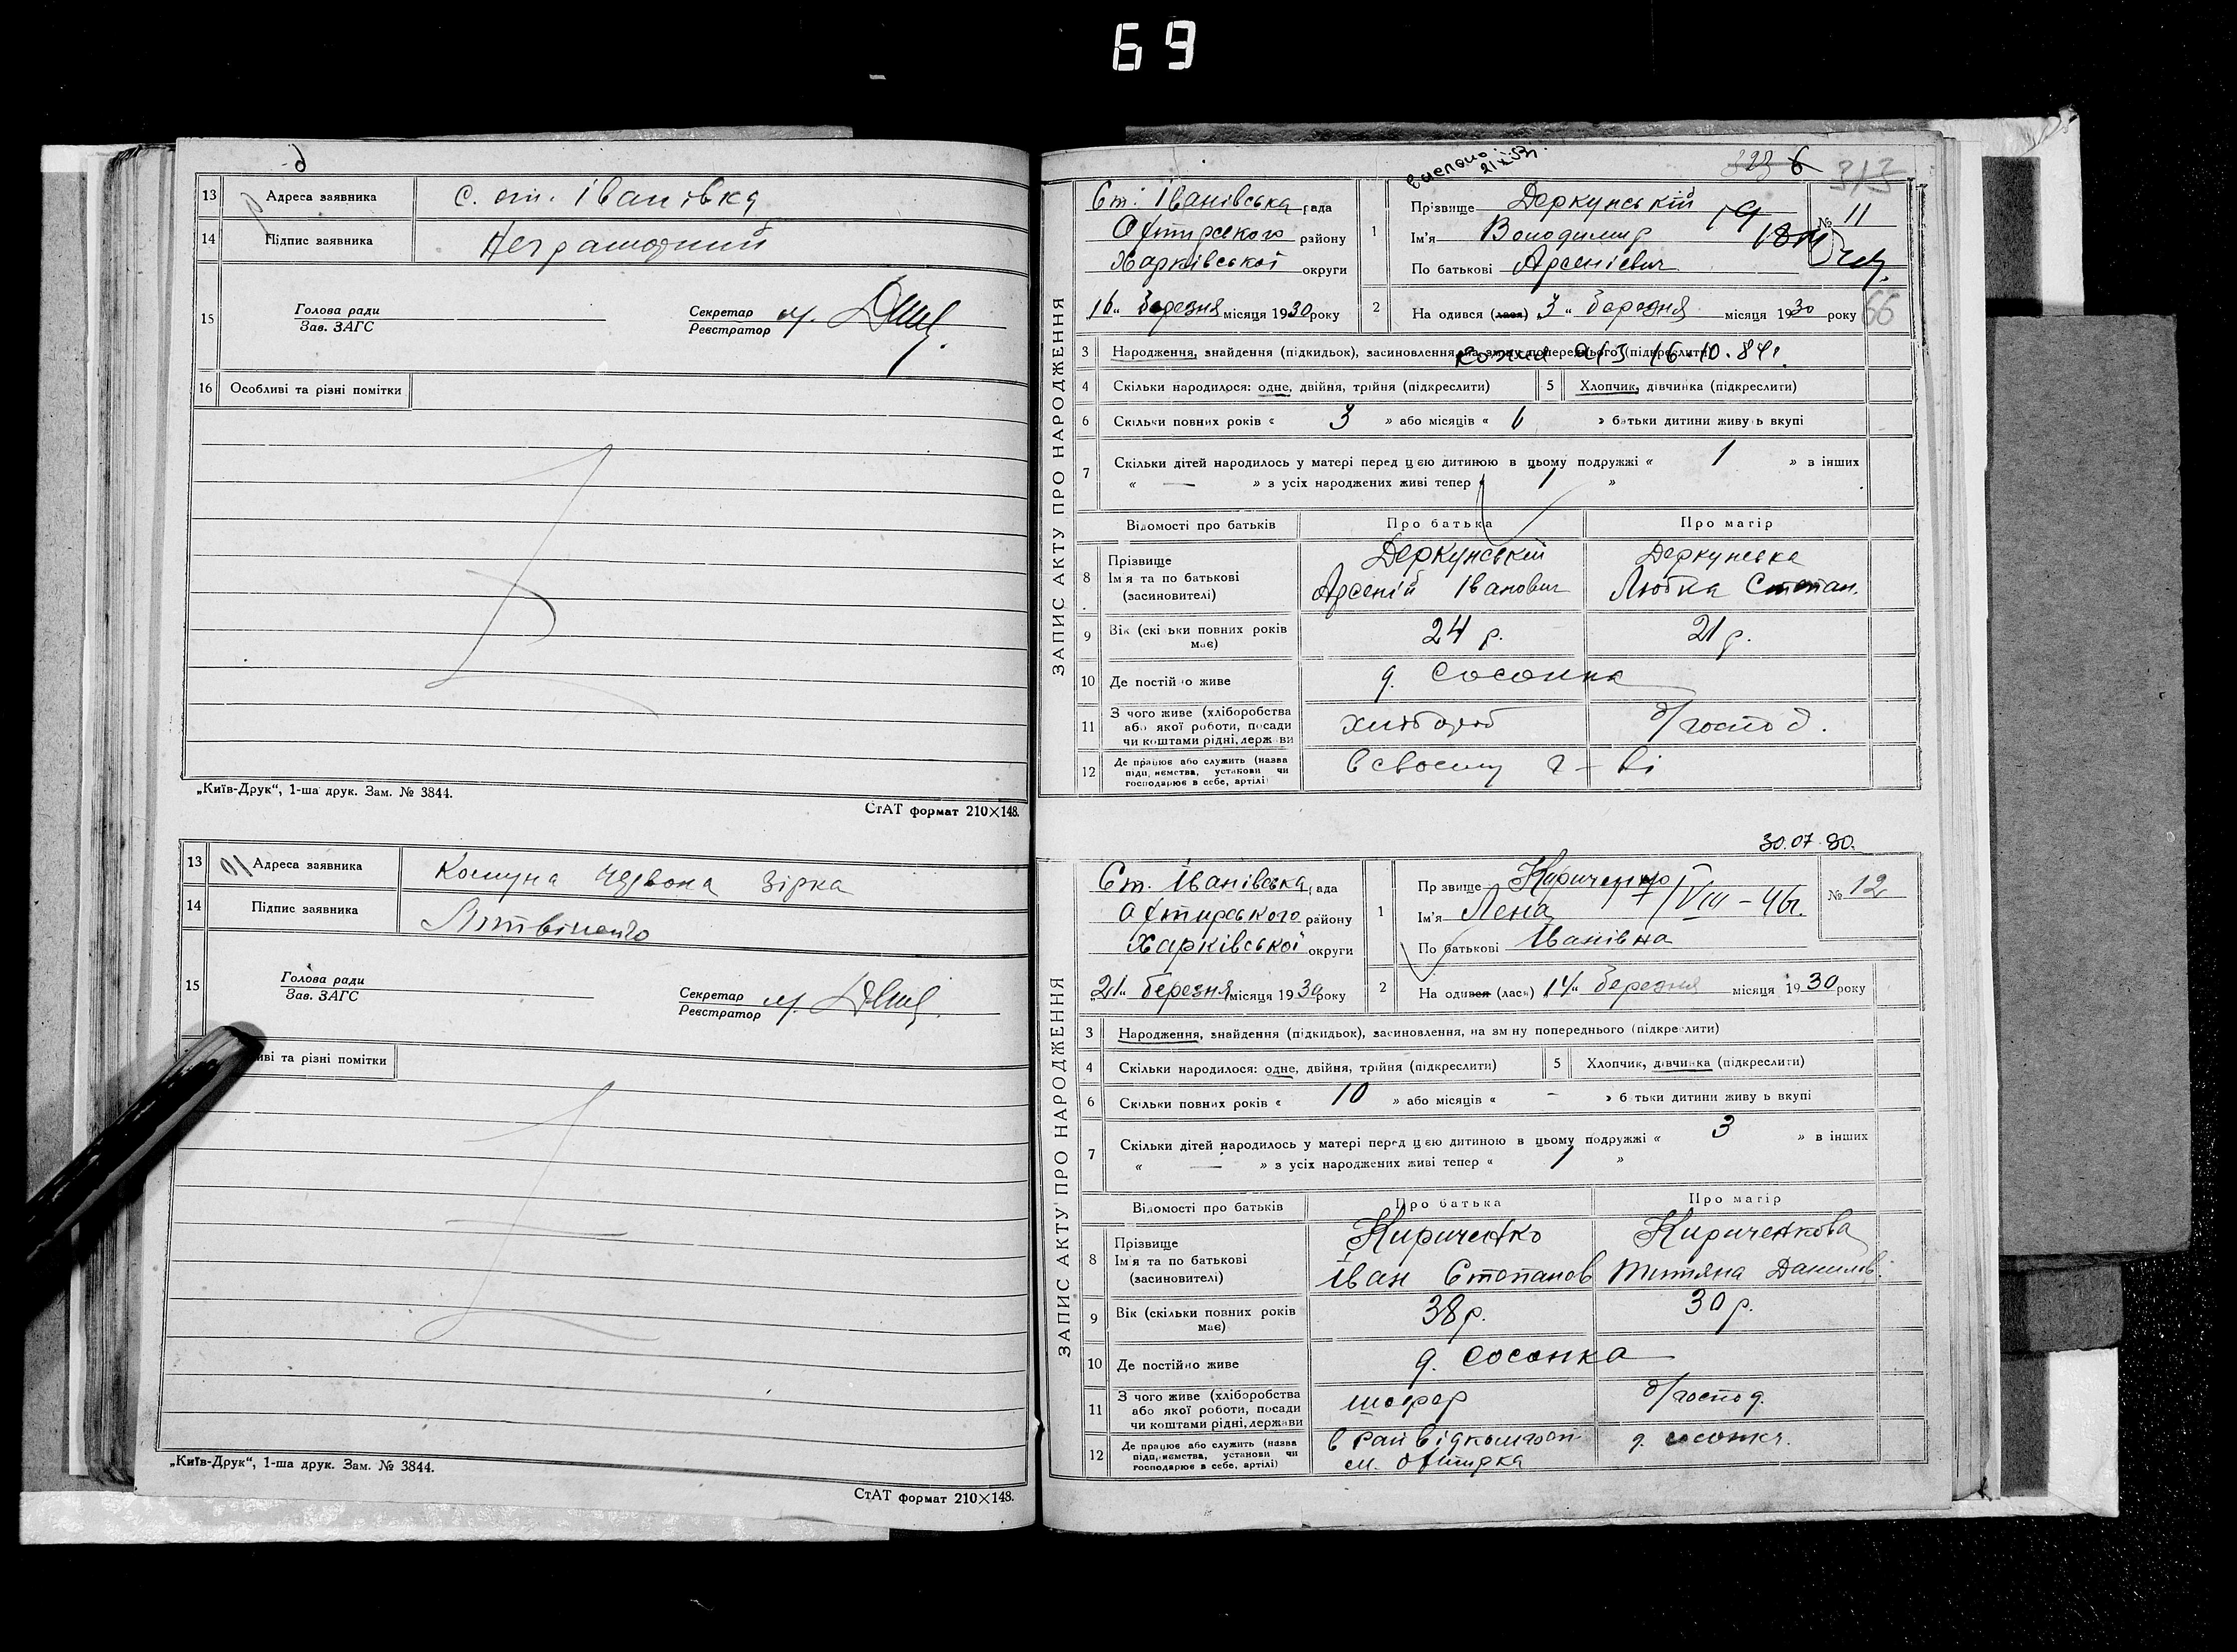 69
13 Адреса заявника с. ст. Іванівка
14 Підпис заявника Неграмотний
15 Голова ради
Зав. ЗАГС
Секретар
Реєстратор
16 Особливі та різні помітки
„Київ-Друк“, 1-ша друк. Зам. № 3844.
СтАТ формат 210×148.
13 Адреса заявника Комуна Червона Зірка
14 Підпис заявника Литвіненко
15 Голова ради
Зав. ЗАГС
Секретар
Реєстратор
иві та різні помітки
„Київ-Друк“, 1-ша друк. Зам. № 3844.
СтАТ формат 210×148.
313
ЗАПИС АКТУ ПРО НАРОДЖЕННЯ
Ст. Іванівська рада
Охтирського району
Харківської округи
16 „ березня місяця 1930 року
1 Прізвище Деркунський
Ім'я Володимир
По батькові Арсенієвич
№ 11
2 На одився (лася) „3“ березня місяця 1930 року
66
3 Народження, знайдення (підкидьок), засиновлення, на зміну попереднього (підкреслити)
16.10.84г
4 Скільки народилося: одне, двійня, трійня (підкреслити) 5 Хлопчик, дівчинка (підкреслити)
6 Скільки повних років « 3 » або місяців « 6 » батьки дитини живуть вкупі
7 Скільки дітей народилось у матері перед цією дитиною в цьому подружжі « 1 » в інших
« — » з усіх народжених живі тепер « 1 »
Відомості про батьків Про батька Про матір
8 Прізвище
Ім'я та по батькові
(засиновителі)
Деркунський
Арсеній Іванович
Деркунська
Любка Степан.
9 Вік (скільки повних років має) 24 р. 21 р.
10 Де постійно живе д. Сосонка
11 З чого живе (хліборобства
або якої роботи, посади
чи коштами рідні, держави
хлібороб д/господ.
12 Де працює або служить (назва
підприємства, установи чи
господарює в себе, артілі)
в своєму г-ві
30.07.80.
ЗАПИС АКТУ ПРО НАРОДЖЕННЯ
Ст. Іванівська рада
Охтирського району
Харківської округи
„21“ березня місяця 1930 року
1 Прзвище Кириченко
Ім'я Лена
По батькові Іванівна
№ 12
2 На одився (лася) 14„ березня місяця 1930 року
3 Народження, знайдення (підкидьок), засиновлення, на зміну попереднього (підкреслити)
4 Скільки народилося: одне, двійня, трійня (підкреслити) 5 Хлопчик, дівчинка (підкреслити)
6 Скільки повних років « 10 » або місяців « - » батьки дитини живуть вкупі
7 Скільки дітей народилось у матері перед цією дитиною в цьому подружжі « 3 » в інших
« — » з усіх народжених живі тепер « 1 »
Відомості про батьків Про батька Про матір
8 Прізвище
Ім'я та по батькові
(засиновителі)
Кириченко
Іван Степанов
Кириченкова
Титяна Данилов.
9 Вік (скільки повних років має) 38 р. 30 р.
10 Де постійно живе д. Сосонка
11 З чого живе (хліборобства
або якої роботи, посади
чи коштами рідні, держави
шофер д/господ.
12 Де працює або служить (назва
підприємства, установи чи
господарює в себе, артілі)
м. Охтирка